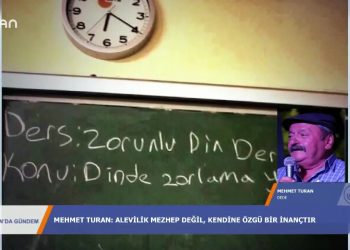 Ders: Zorunlu Din Der
Konu: Dinde zorlama
MEHMET TURAN
DEDE
N'DA GÜNDEM
MEHMET TURAN: ALEVİLİK MEZHEP DEĞİL, KENDİNE ÖZGÜ BİR İNANÇTIR